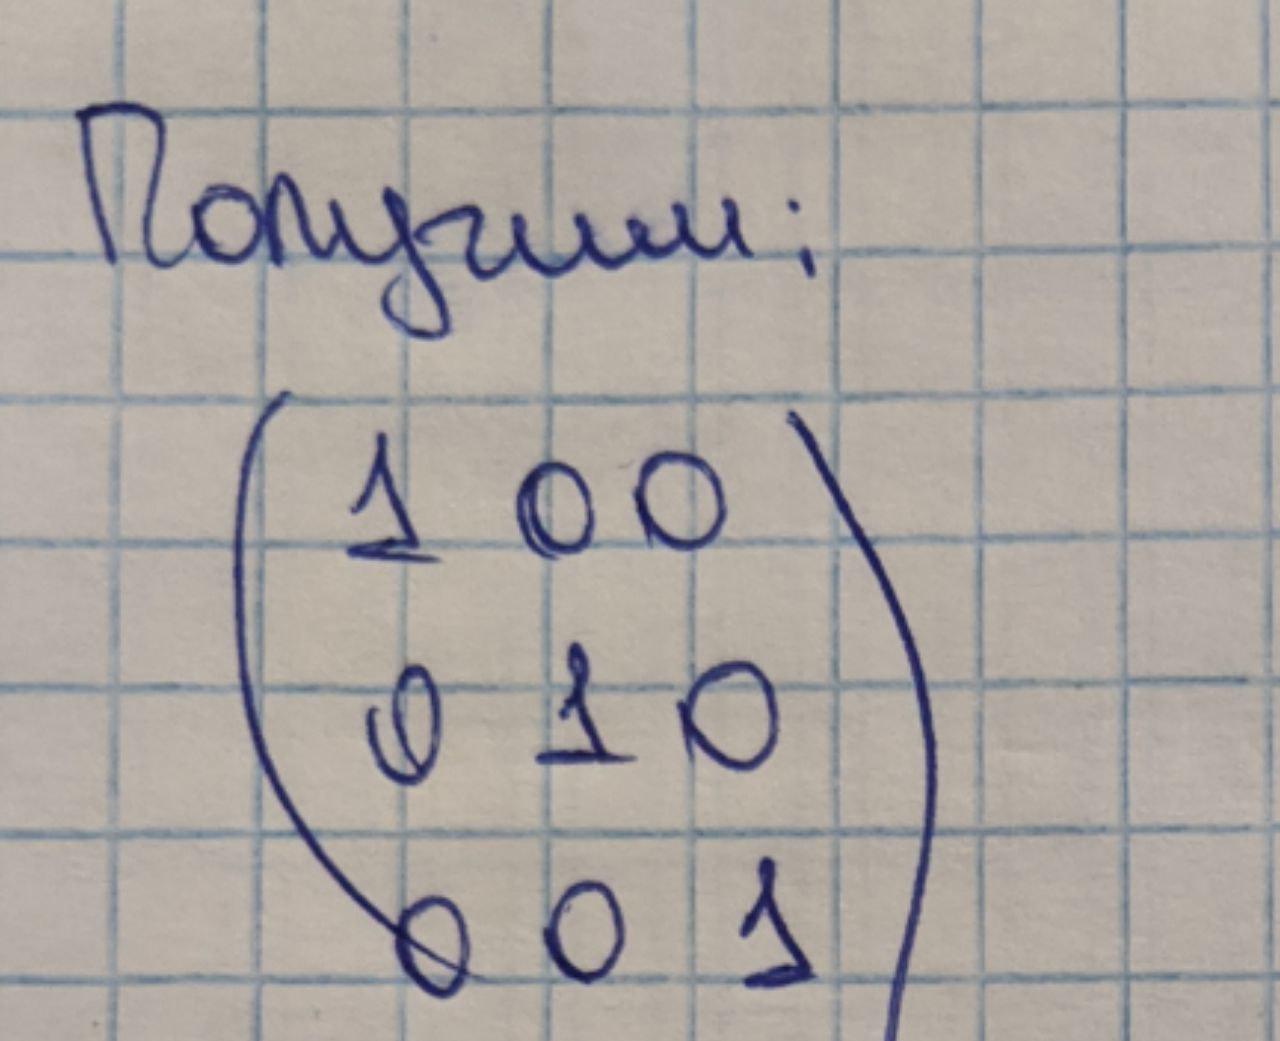 Получим:
1 0 0
0 1 0
0 0 1